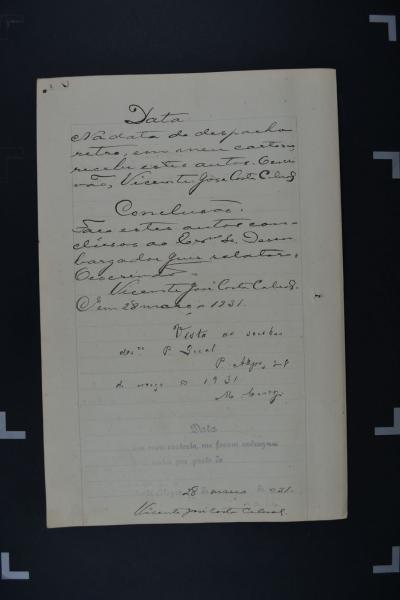 Data
Na data do despacho
retro, em meu cartorio
recebi estes autos. O escri-
vão, Vicente José Costa Cabral
Conclusão.
Faço estes autos con-
clusos ao Exmo Sr. Desem-
bargador Juiz relator.
O escrivão
Vicente José Costa Cabral.
Em 28 março 1931.
Vista ao senhor
des.or P. Geral
P. Alegre, 28
de março de 1931
M.
Data
em meu cartorio, me foram entregues
por parte do
28 de março de 931.
Vicente José Costa Cabral.